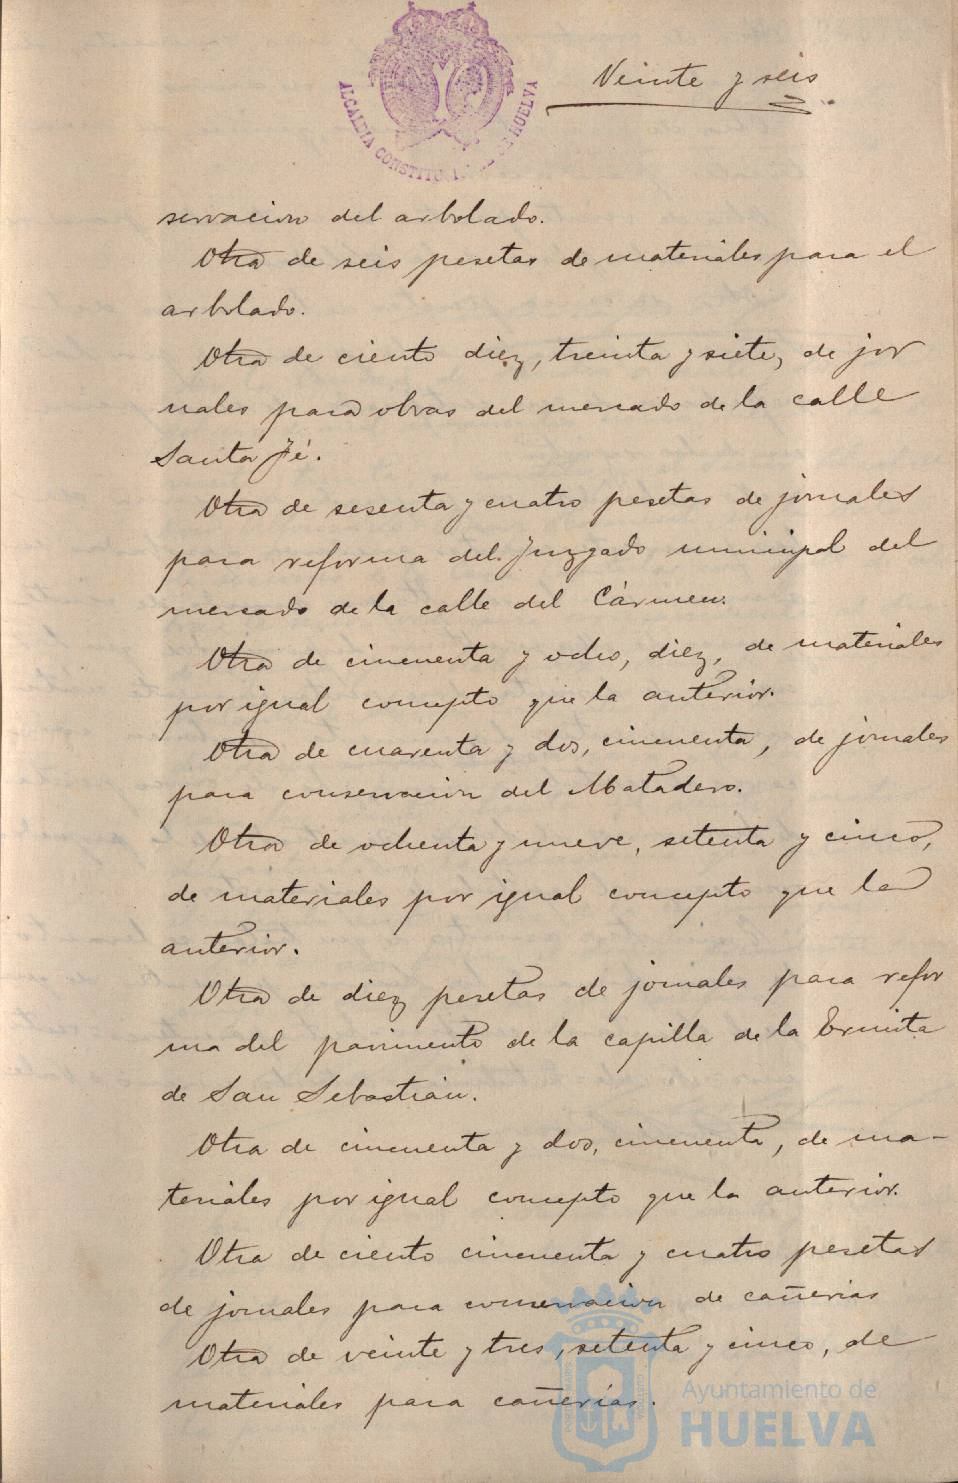 Veinte y seis
ALCALDIA CONSTITUCIONAL DE HUELVA
servacion del arbolado.
Otra de seis pesetas de materiales para el
arbolado.
Otra de ciento diez, treinta y siete, de jor
nales para obras del mercado de la calle
Santa Fé.
Otra de sesenta y cuatro pesetas de jornales
para reforma del Juzgado municipal del
mercado de la calle del Cármen.
Otra de cincuenta y ocho, diez, de materiales
por igual concepto que la anterior.
Otra de cuarenta y dos, cincuenta, de jornales
para conservacion del Matadero.
Otra de ochenta y nueve, setenta y cinco,
de materiales por igual concepto que la
anterior.
Otra de diez pesetas de jornales para refor
ma del pavimento de la capilla de la Ermita
de San Sebastián.
Otra de cincuenta y dos, cincuenta, de ma-
teriales por igual concepto que la anterior.
Otra de ciento cincuenta y cuatro pesetas
de jornales para conservacion de cañerias
Otra de veinte y tres, setenta y cinco, de
materiales para cañerías.
Ayuntamiento de
HUELVA